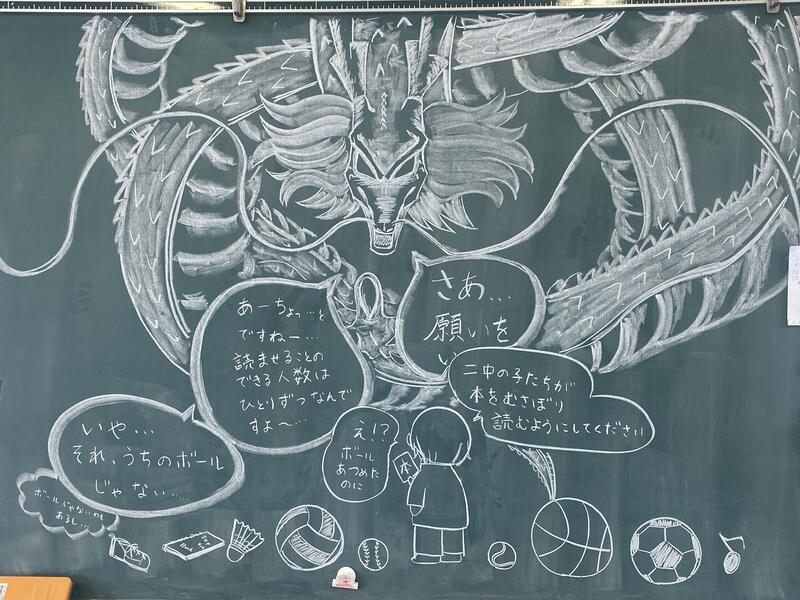 さあ…
願いを
い
二中の子たちが
本をむさぼり
読むようにしてください
あーちょっ…と
ですねー…
読ませることの
できる人数は
ひとりずつなんで
すよ〜…
え!?
ボール
あつめた
のに
本
いや…
それ、うちのボール
じゃない……
ボールじゃな…のも
あるし…